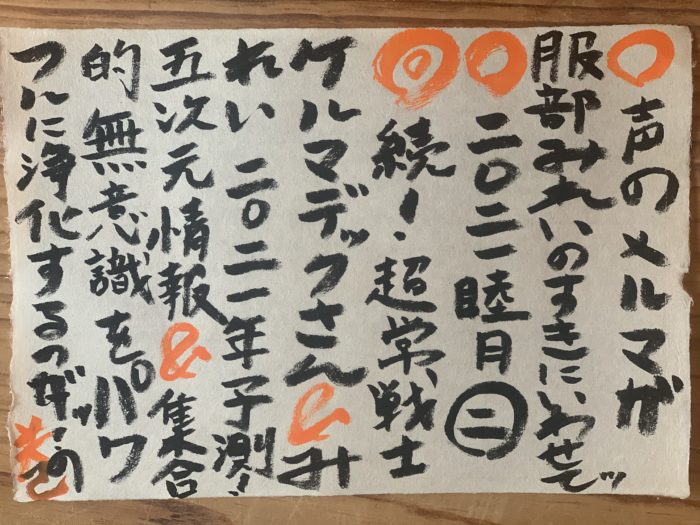 ○声のメルマガ
服部みれいのすきにいわせてッ
○二〇二一睦月㊁
◎続!超常戦士
ケルマデックさん&み
れい 二〇二一年予測!
五次元情報&集合
的無意識をパワ
フルに浄化するつがッ!の
巻